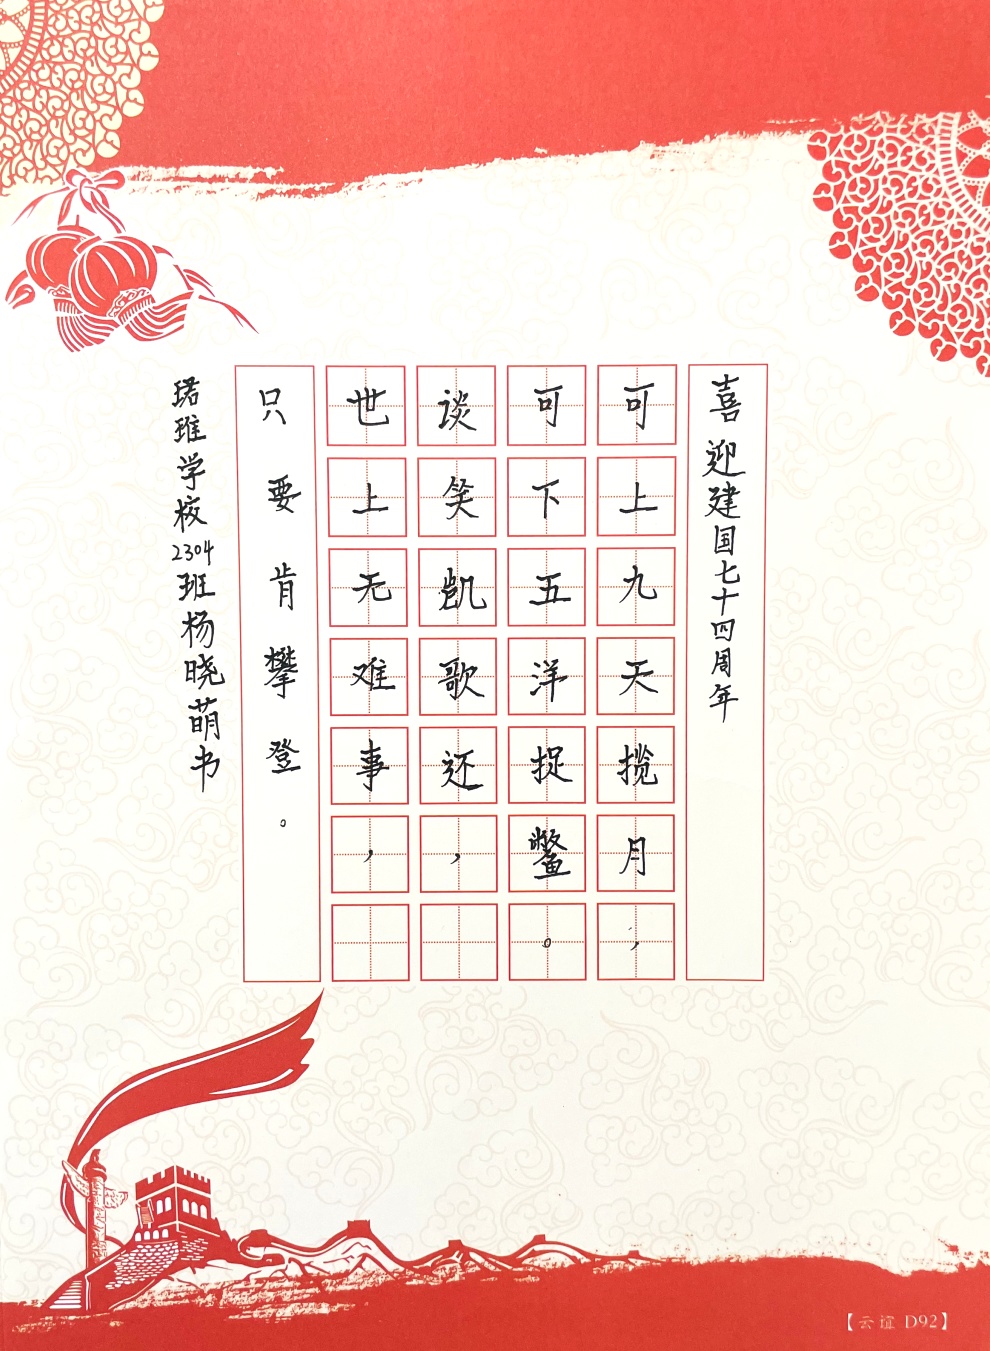 喜迎建国七十四周年
可上九天揽月，
可下五洋捉鳖。
谈笑凯歌还，
世上无难事，
只要肯攀登。
珺琟学校2304班杨晓萌书
【云谊 D92】